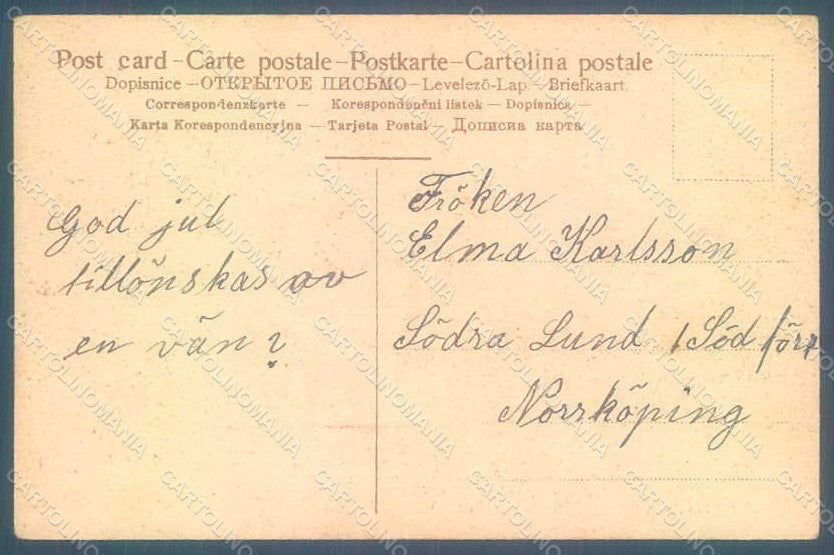 Post card – Carte postale – Postkarte – Cartolina postale
Dopisnice – ОТКРЫТОЕ ПИСЬМО – Levelező-Lap. – Briefkaart.
Correspondenzkarte – Korespondenčni listek – Dopisnica –
Karta Korespondencyjna – Tarjeta Postal – Дописна карта
God jul
tillönskas av
en vän?
Fröken
Elma Karlsson
Södra Lund 1 Söd för
Norrköping
CARTOLINOMANIA